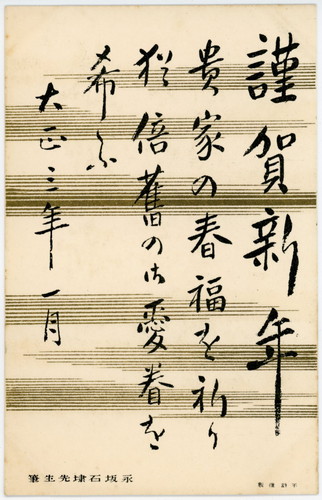 謹賀新年
貴家の春福を祈り
猶倍舊の御愛眷を
希ふ
大正三年一月
永坂石埭先生筆
不許複製